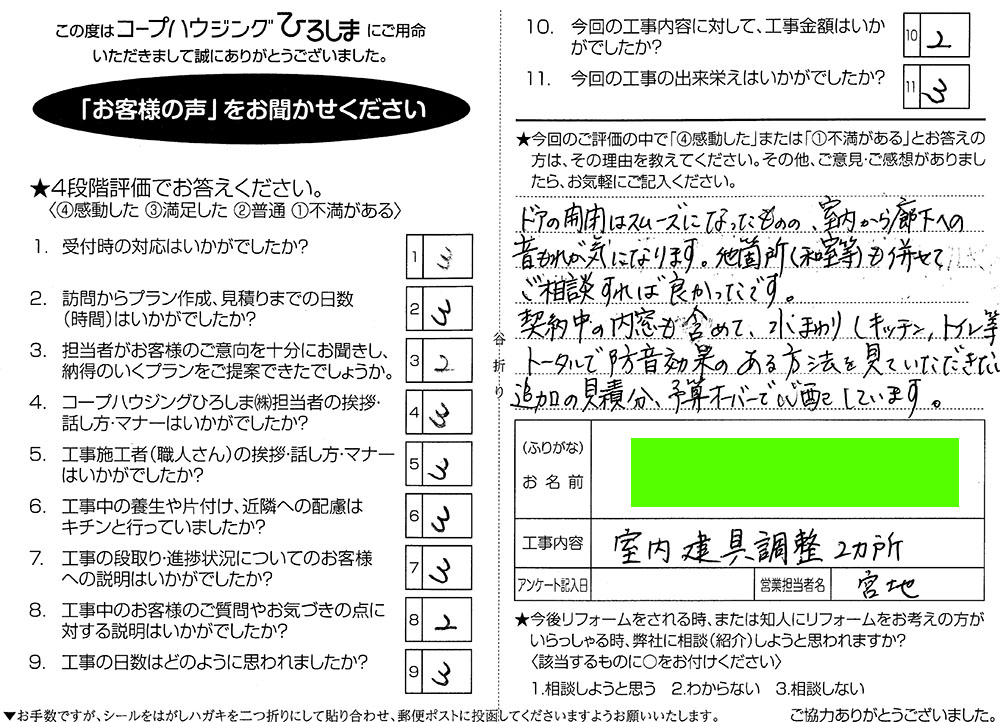 この度はコープハウジングひろしまにご用命
いただきまして誠にありがとうございました。
「お客様の声」をお聞かせください
★4段階評価でお答えください。
〈④感動した ③満足した ②普通 ①不満がある〉
1. 受付時の対応はいかがでしたか?
1 3
2. 訪問からプラン作成、見積りまでの日数
(時間)はいかがでしたか?
2 3
3. 担当者がお客様のご意向を十分にお聞きし、
納得のいくプランをご提案できたでしょうか。
3 2
4. コープハウジングひろしま㈱担当者の挨拶・
話し方・マナーはいかがでしたか?
4 3
5. 工事施工者(職人さん)の挨拶・話し方・マナー
はいかがでしたか?
5 3
6. 工事中の養生や片付け、近隣への配慮は
キチンと行っていましたか?
6 3
7. 工事の段取り・進捗状況についてのお客様
への説明はいかがでしたか?
7 3
8. 工事中のお客様のご質問やお気づきの点に
対する説明はいかがでしたか?
8 2
9. 工事の日数はどのように思われましたか?
9 3
谷折り
10. 今回の工事内容に対して、工事金額はいか
がでしたか?
10 2
11. 今回の工事の出来栄えはいかがでしたか?
11 3
★今回のご評価の中で「④感動した」または「①不満がある」とお答えの
方は、その理由を教えてください。その他、ご意見・ご感想がありまし
たら、お気軽にご記入ください。
ドアの開閉はスムーズになったものの、室内から廊下への
音もれが気になります。他箇所(和室等)も併せて
ご相談すれば良かったです。
契約中の内窓も含めて、水まわり(キッチン,トイレ等
トータルで防音効果のある方法を見ていただきたい
追加の見積分、予算オーバーで心配をしています。
(ふりがな)
お名前
工事内容 室内建具調整 2カ所
アンケート記入日 営業担当者名 宮地
★今後リフォームをされる時、または知人にリフォームをお考えの方が
いらっしゃる時、弊社に相談(紹介)しようと思われますか?
〈該当するものに○をお付けください〉
1.相談しようと思う 2.わからない 3.相談しない
▼お手数ですが、シールをはがしハガキを二つ折りにして貼り合わせ、郵便ポストに投函してくださいますようお願いいたします。 ご協力ありがとうございました。